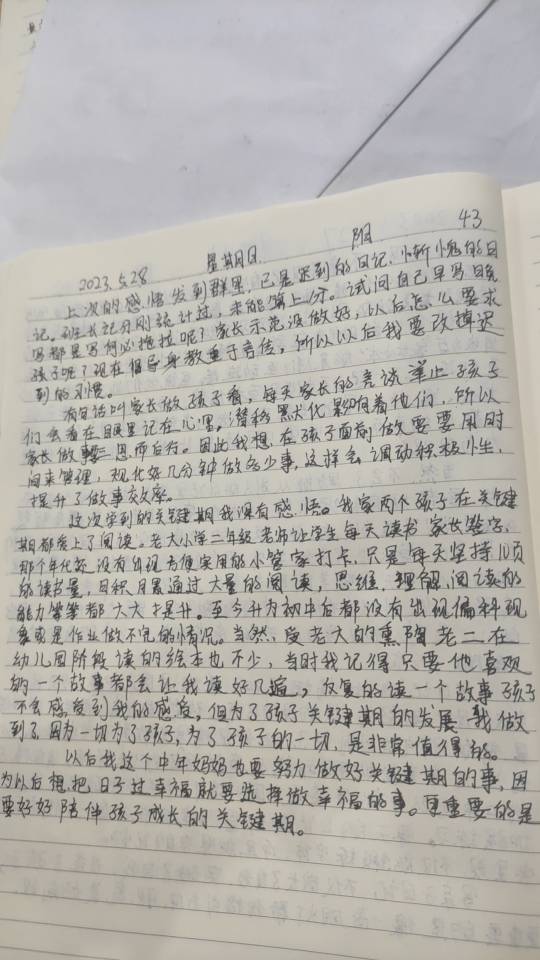 43
2023.5.28 星期日 阴
上次的感悟发到群里,已是迟到的日记,惭愧的日
记。班长记分刚统计过,未能算上分。试问自己早写日晚
写都是写何必拖拉呢?家长示范没做好,以后怎么要求
孩子呢?现在倡导身教重于言传,所以以后我要改掉迟
到的习惯。
有句话叫家长做孩子看,每天家长的言谈举止孩子
们会看在眼里记在心里。潜移默化影响着他们,所以
家长做事要三思而后行。因此我想,在孩子面前做要要用时
间来管理,规化好几分钟做多少事,这样会调动积极性,
提升了做事效率。
这次学到的关键期我深有感悟。我家两个孩子在关键
期都爱上了阅读。老大小学二年级老师让学生每天读书家长签字,
那个年代还没有出现方便实用的小管家打卡,只是每天坚持10页
的读书量,日积月累通过大量的阅读,思维,理解,阅读的
能力等等都大大提升。至今升为初中后都没有出现偏科现
象或是作业做不完的情况。当然,受老大的熏陶老二在
幼儿园阶段读的绘本也不少,当时我记得只要他喜观
的一个故事都会让我读好几遍,反复的读一个故事孩子
不会感受到我的感受,但为了孩子关键期的发展我做
到了,因为一切为了孩子,为了孩子的一切,是非常值得的。
以后我这个中年妈妈也要努力做好关键期的事,因
为以后想把日子过幸福就要选择做幸福的事。更重要的是
要好好陪伴孩子成长的关键期。